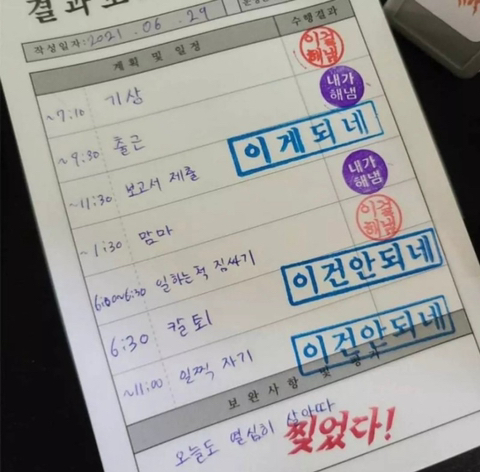 결과보
작성일자: 2021. 06. 29
계획 및 일정 수행결과
~7:10 기상 이걸해냄
~9:30 출근 내가해냄
~11:30 보고서 제출 이게되네
~1:30 맘마 내가해냄
6:00~6:30 일하는척 짐싸기 이걸해냄
6:30 칼퇴 이건안되네
~11:00 일찍 자기 이건안되네
보완사항 및 평가
오늘도 열심히 살아따 찢었다!